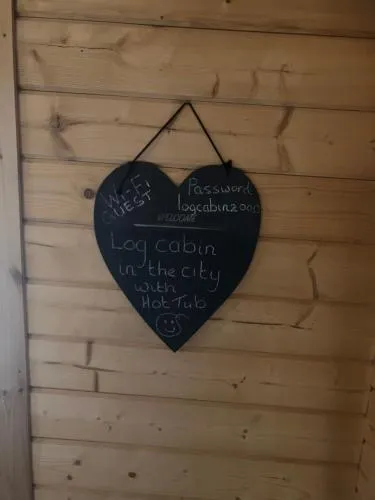 Wi-Fi
GUEST
Password
logcabin2000
WELCOME
Log cabin
in the city
with
Hot Tub